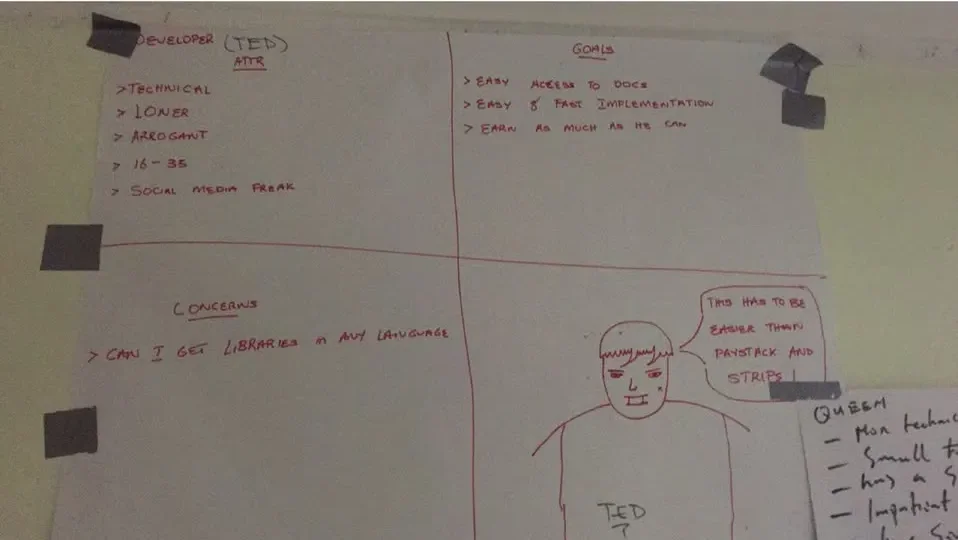 DEVELOPER (TED)
ATTR
> TECHNICAL
> LONER
> ARROGANT
> 16 - 35
> SOCIAL MEDIA FREAK
GOALS
> EASY ACCESS TO DOCS
> EASY & FAST IMPLEMENTATION
> EARN AS MUCH AS HE CAN
CONCERNS
> CAN I GET LIBRARIES in ANY LANGUAGE
THIS HAS TO BE
EASIER THAN
PAYSTACK AND
STRIPS !
TED
?
QUEEN
- Non technic
- Small
- has a S
- Impatient